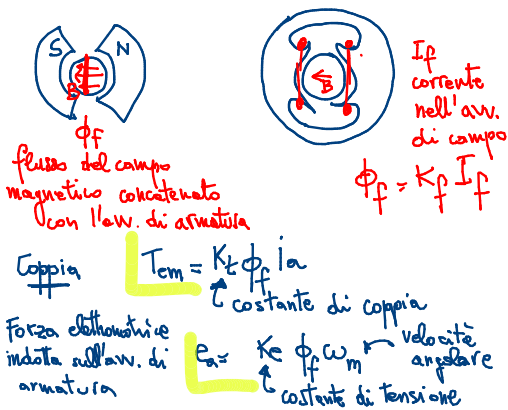 S N
B
B
I_f
corrente
nell'avv.
di campo
ϕ_f
flusso del campo
magnetico concatenato
con l'avv. di armatura
ϕ_f = K_f I_f
Coppia
T_em = K_t ϕ_f i_a
costante di coppia
Forza elettromotrice
indotta sull'avv. di
armatura
e_a = K_e ϕ_f ω_m
velocità
angolare
costante di tensione